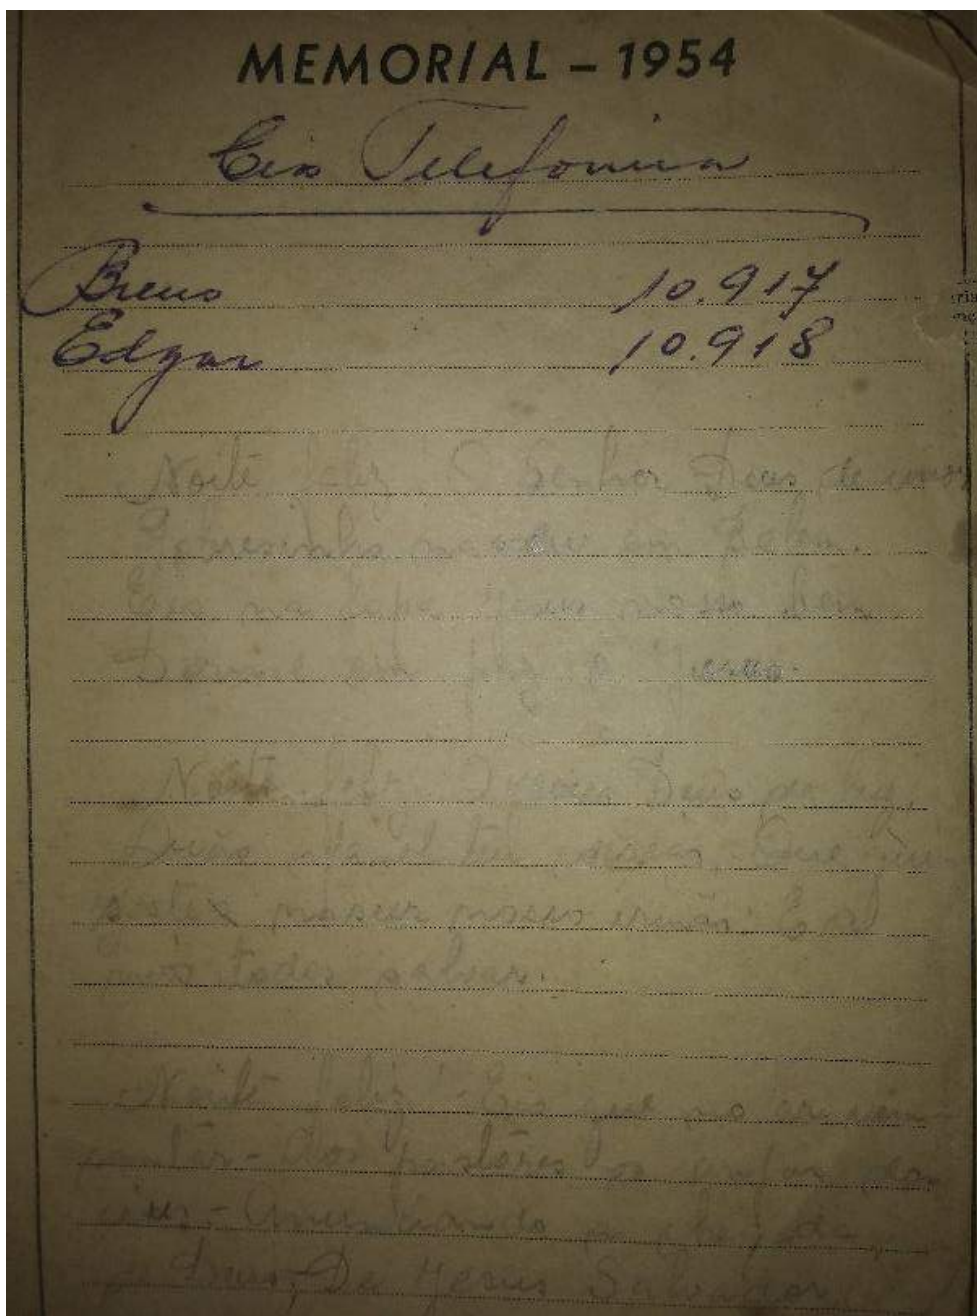 MEMORIAL – 1954
Cia Telefonica
Breno 10.917
Edgar 10.918
Noite feliz! O Senhor Deus de amor
Pobresinho nasceu em Belem.
Eis na lapa Jesus nosso bem
Dorme em paz o Jesus.
Noite feliz Jesus Deus da luz,
Quão afavel teu
nascer nosso irmão. E a
nós todos salvar.
Noite feliz! Eis que no ar vem
cantar - Aos pastores os anjos dos
céus - Anunciando a chegada
de Deus, De Jesus Salvador